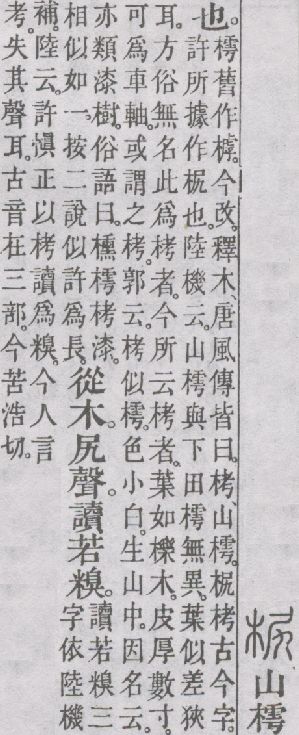 㭒 山樗
也。
樗舊作㯉。今改。釋木、唐風傳皆曰。栲、山樗。㭒栲古今字。
許所據作㭒也。陸機云。山樗與下田樗無異。葉似差狹
耳。方俗無名此爲栲者。今所云栲者。葉如櫟木。皮厚數寸。
可爲車軸。或謂之栲。郭云。栲似樗。色小白。生山中。因名云。
亦類漆樹。俗語曰。櫄樗栲漆。
相似如一。按二說似許爲長。
從木。尻聲。讀若糗。
讀若糗三
字依陸機
補。陸云。許愼正以栲讀爲糗。今人言
考。失其聲耳。古音在三部。今苦浩切。